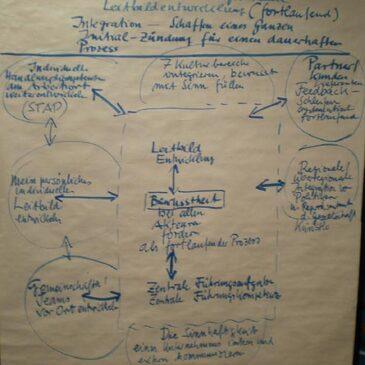 Leitbildentwicklung (fortlaufend)
Integration – Schaffen eines Ganzen
Initial-Zündung für einen dauerhaften
Prozess
Individuelle
Handlungskompetenzen
am Arbeitsort
weiterentwickeln
(STAP)
7 Kulturbereiche
integrieren, bewusst
mit Sinn füllen
Partner/
Kunden
Feedback-
Schleifen
fortlaufend
Mein persönliches
individuelles
Leitbild
entwickeln
Leitbild
Entwicklung
Bewusstheit
bei allen
Akteuren
fördern
als fortlaufender Prozess
Regionale/
überregionale
Integration in
Politik
d. Gesellschaft
Gemeinschaften/
Teams
vor Ort entwickeln
Zentrale Führungsaufgabe
Zentrale Führungskompetenz
Die Sinnhaftigkeit
eines Unternehmens
kommunizieren